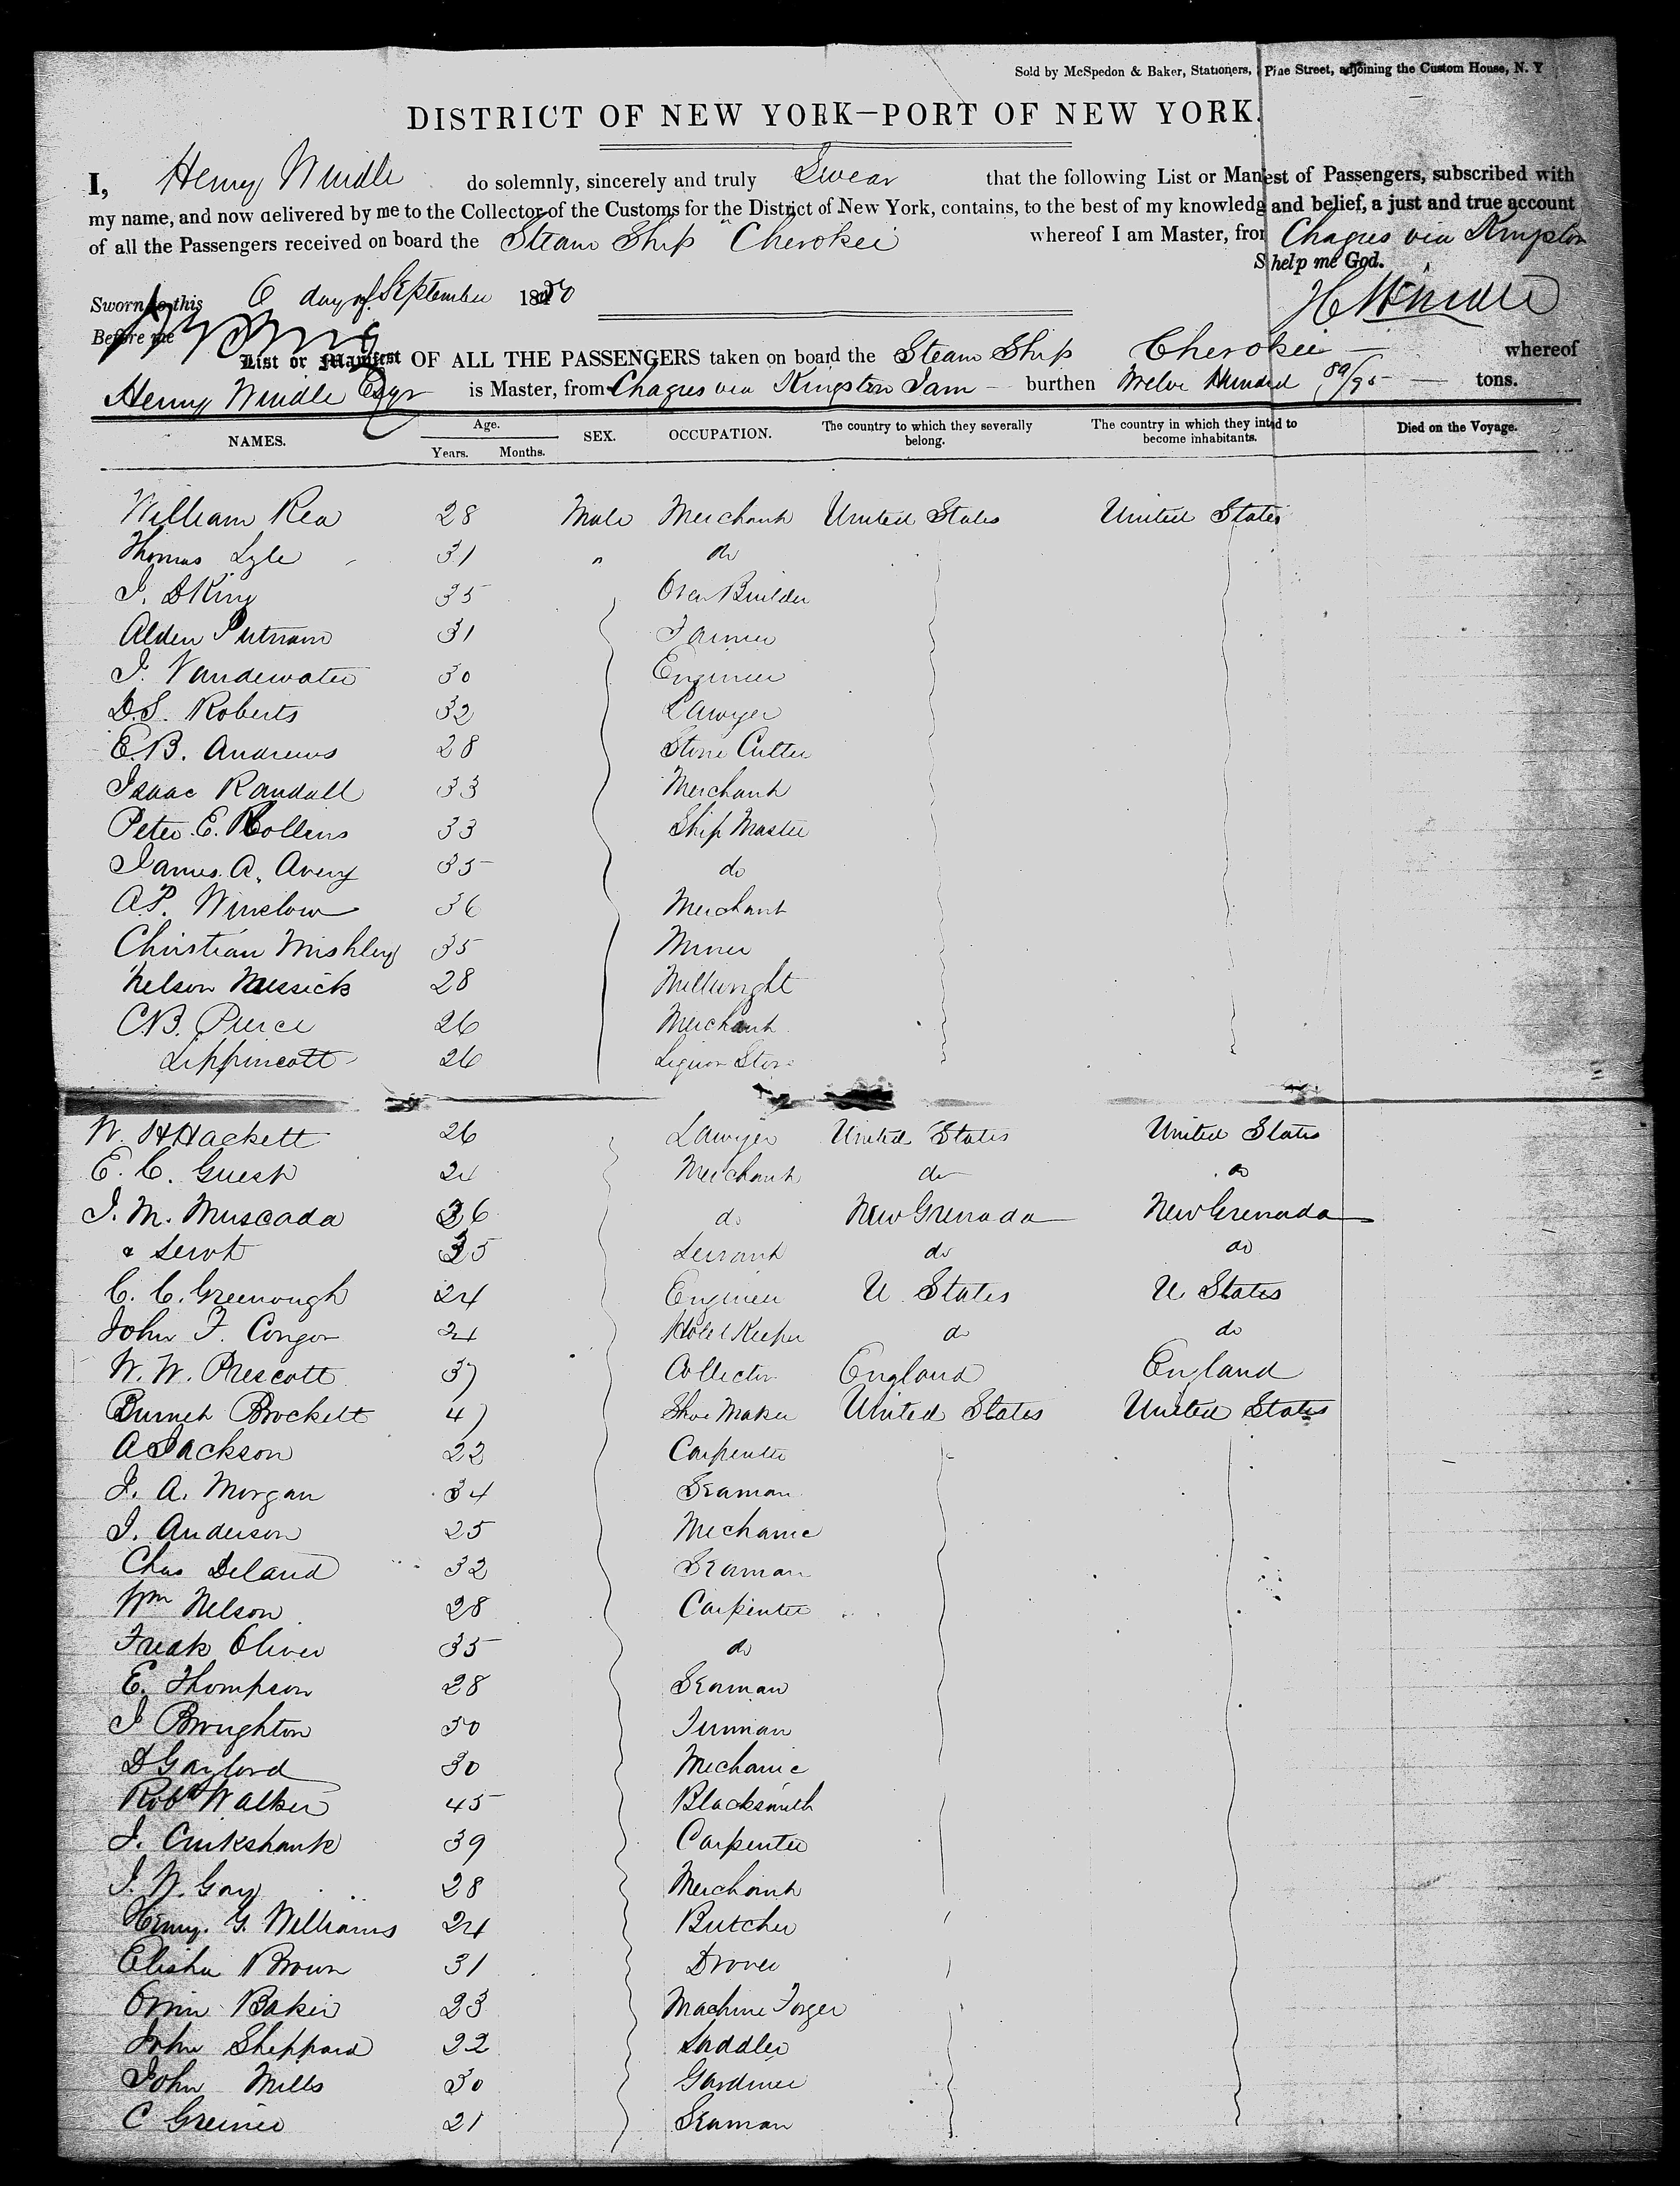 Sold by McSpedon & Baker, Stationers, Pine Street, adjoining the Custom House, N. Y
DISTRICT OF NEW YORK—PORT OF NEW YORK.
I, Henry Windle do solemnly, sincerely and truly Swear that the following List or Manest of Passengers, subscribed with
my name, and now delivered by me to the Collector of the Customs for the District of New York, contains, to the best of my knowledg and belief, a just and true account
of all the Passengers received on board the Steam Ship "Cherokee whereof I am Master, from Chagres via Kingston
S help me God.
Sworn to this 6 day of September 1850 H Windle
Before me
List or Manifest OF ALL THE PASSENGERS taken on board the Steam Ship Cherokee — whereof
Henry Windle Esqr is Master, from Chagres via Kingston Jam — burthen Twelve Hundred 89/95 — tons.
NAMES. Age. Years. Months. SEX. OCCUPATION. The country to which they severally belong. The country in which they intd to become inhabitants. Died on the Voyage.
William Rea 28 Male Merchant United States United States
Thomas Lyle 31 " do
J. D King 35 Builder
Alden Putnam 31 Farmer
J. Vandewater 30 Engineer
D.S. Roberts 32 Lawyer
E.B. Andrews 28 Stone Cutter
Isaac Randall 33 Merchant
Peter E. Rollins 33 Ship Master
James A. Avery 35 do
A.P. Winslow 36 Merchant
Christian Mishley 35 Miner
Nelson Messick 28 Millwright
C.B. Pierce 26 Merchant
Lippincott 26 Liquor Store
W. H Hackett 26 Lawyer United States United States
E. C. Guest 24 Merchant do do
J. M. Muscada 36 do New Grenada New Grenada
& Servt 35 Servant do do
C. C. Greenough 24 Engineer U States U States
John F. Conger 24 Hotel Keeper do do
W. W. Prescott 37 Collector England England
Burnet Brockett 47 Shoe Maker United States United States
A Jackson 22 Carpenter
J. A. Morgan 34 Seaman
J. Anderson 25 Mechanic
Chas Deland 32 Seaman
Wm Nelson 28 Carpenter
Fredk Oliver 35 do
E. Thompson 28 Seaman
J Broughton 30
D Gaylord 30 Mechanic
Robt Walker 45 Blacksmith
J. Cruikshank 39 Carpenter
J. W. Gay 28 Merchant
Henry. G. Williams 24 Butcher
Elisha Brown 31 Drover
Orrin Baker 23 Machine Forger
John Sheppard 22 Saddler
John Mills 30 Gardiner
C Greiner 21 Seaman